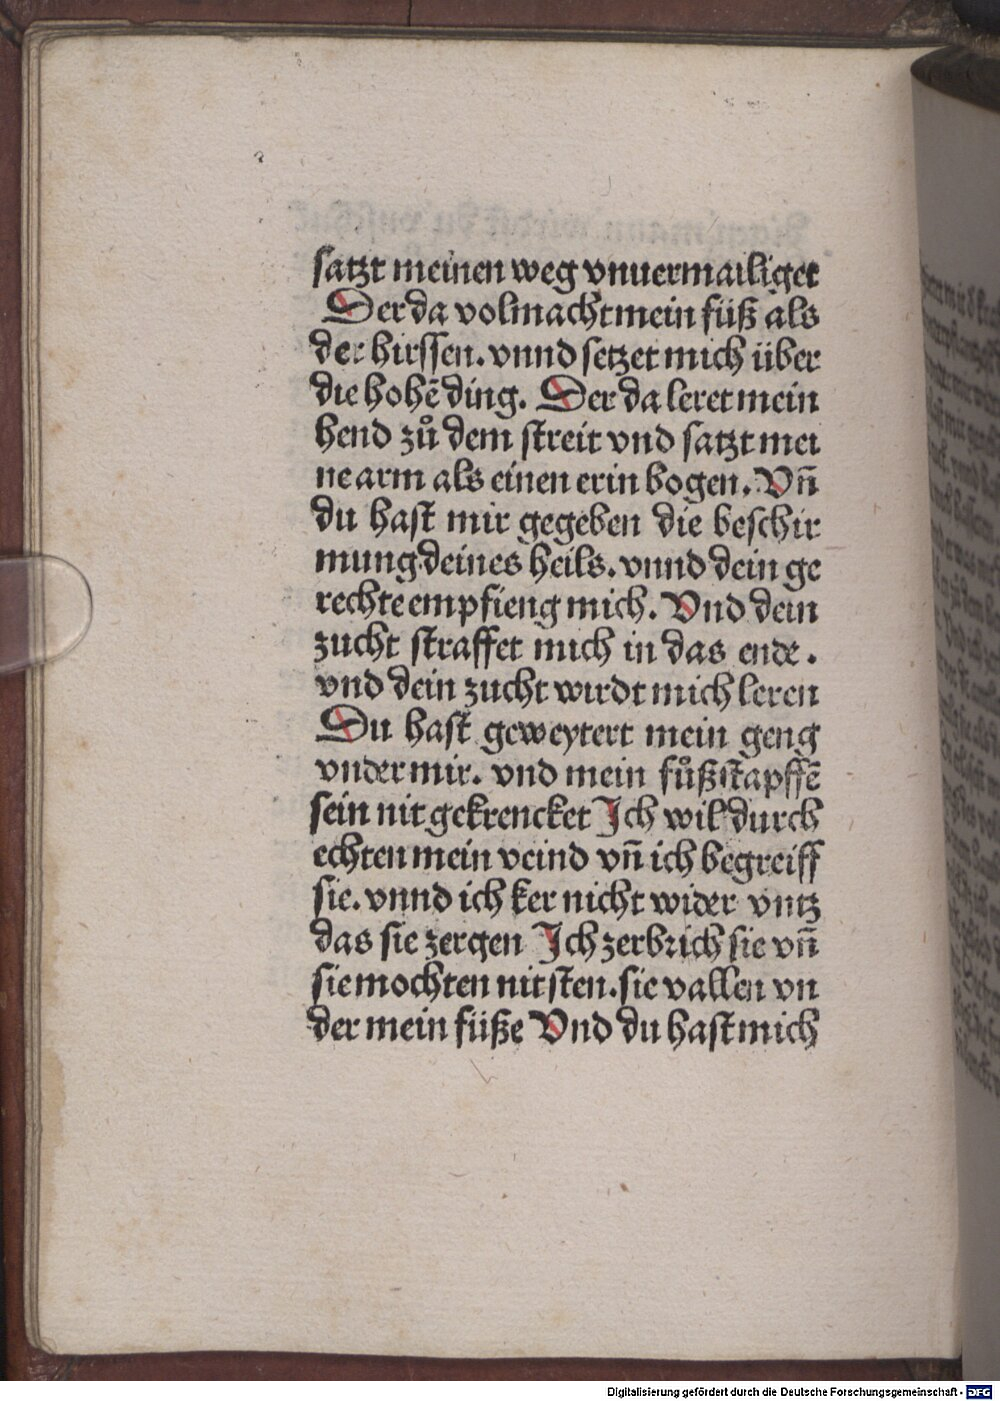 satzt meinen weg vnuermailiget
Der da volmacht mein füß als
der hirssen. vnnd setzet mich über
die hohē ding. Der da leret mein
hend zů dem streit vnd satzt mei
ne arm als einen erin bogen. Vn̄
du hast mir gegeben die beschir
mung deines heils. vnnd dein ge
rechte empfieng mich. Vnd dein
zucht straffet mich in das ende.
vnd dein zucht wirdt mich leren
Du hast geweytert mein geng
vnder mir. vnd mein fůßstapffē
sein nit gekrencket Ich wil durch
echten mein veind vn̄ ich begreiff
sie. vnnd ich ker nicht wider vntz
das sie zergen Ich zerbrich sie vn̄
sie mochten nit sten. sie vallen vn
der mein füße Vnd du hast mich
Digitalisierung gefördert durch die Deutsche Forschungsgemeinschaft - DFG